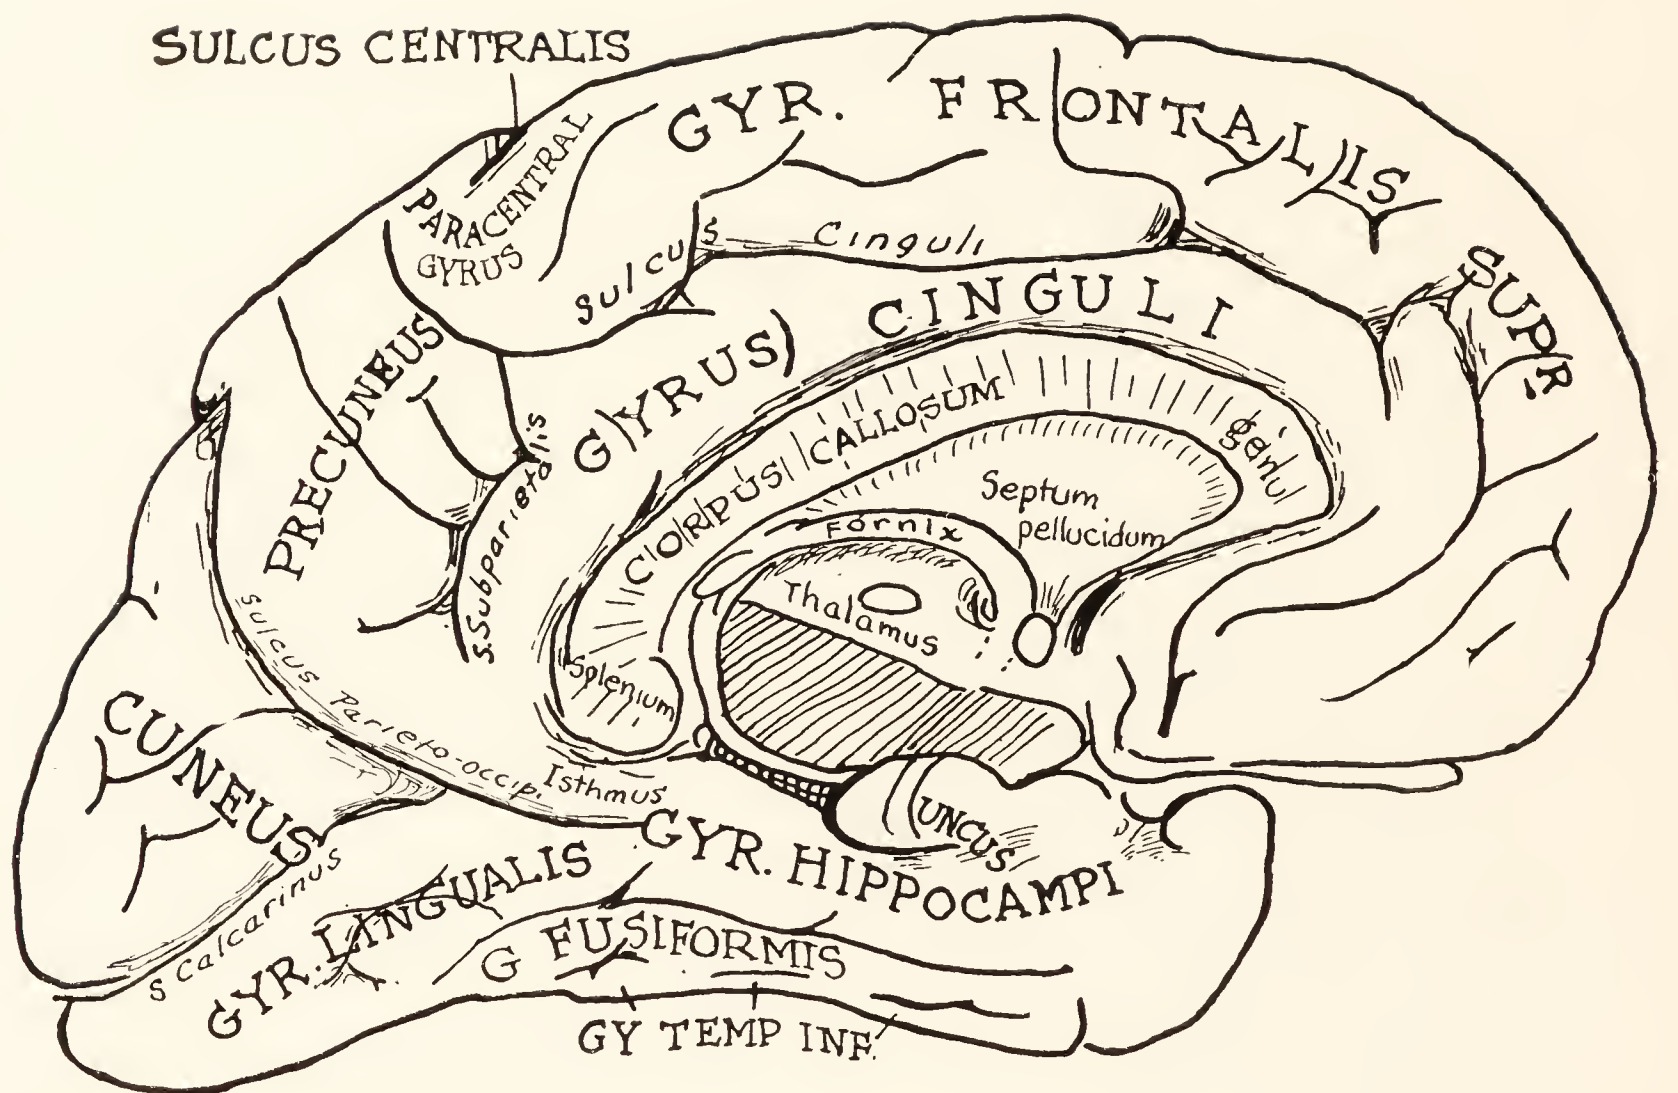 SULCUS CENTRALIS
GYR. FRONTALIS SUPR
PARACENTRAL
GYRUS
Sulcus Cinguli
GYRUS CINGULI
PRECUNEUS
S. Subparietalis
CORPUS CALLOSUM
genu
Septum
pellucidum
Fornix
Thalamus
Splenium
Sulcus Parieto-occip.
Isthmus
CUNEUS
UNCUS
GYR. HIPPOCAMPI
S Calcarinus
GYR. LINGUALIS
G FUSIFORMIS
GY TEMP INF.